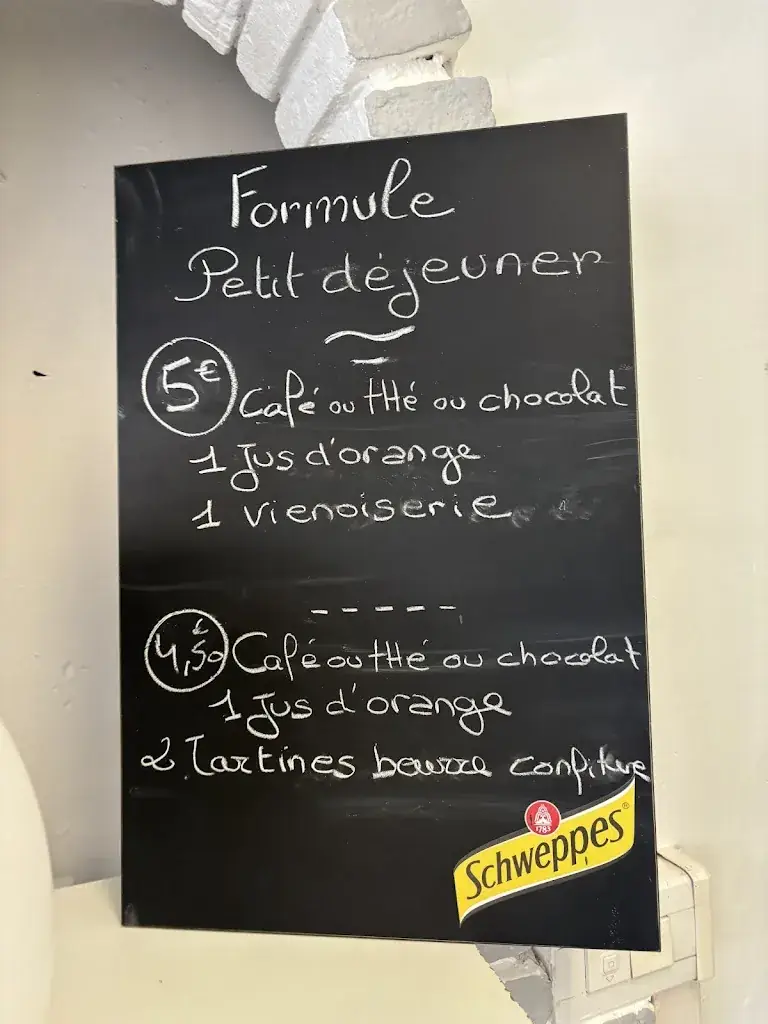 Formule
Petit déjeuner
5€ Café ou thé ou chocolat
1 Jus d'orange
1 vienoiserie
4,50€ Café ou thé ou chocolat
1 Jus d'orange
2 Tartines beurre confiture
1783
Schweppes®